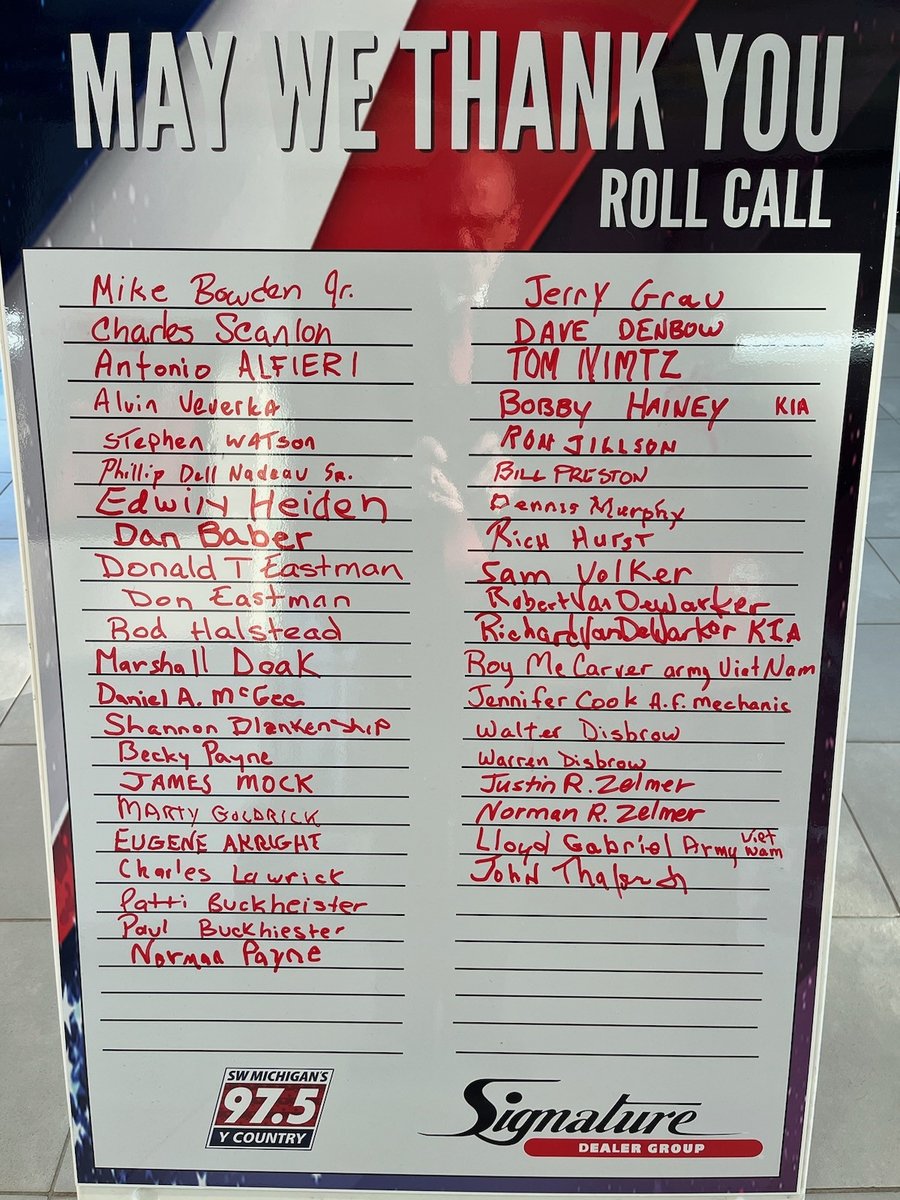 MAY WE THANK YOU
ROLL CALL
Mike Bowden Jr.
Charles Scanlon
Antonio ALFIERI
Alvin VeverkA
Stephen WATson
Phillip Dell Nadeau Sr.
Edwin Heiden
Dan Baber
Donald T Eastman
Don Eastman
Rod Halstead
Marshall Doak
Daniel A. McGee
Shannon Blankenship
Becky Payne
JAMES MOCK
MARTY GOLDRICK
EUGENE AKRIGHT
Charles Lawrick
Patti Buckheister
Paul Buckhiester
Norman Payne
Jerry Grau
DAVE DENBOW
TOM NIMTZ
BOBBY HAINEY KIA
RON JILLSON
BILL PRESTON
Dennis Murphy
RICH HURST
Sam Volker
Robert VanDeWarker
Richard VanDeWarker KIA
Roy McCarver army Viet Nam
Jennifer Cook A.F. mechanic
Walter Disbrow
Warren Disbrow
Justin R. Zelmer
Norman R. Zelmer
Lloyd Gabriel Army Viet Nam
John
SW MICHIGAN'S
97.5
Y COUNTRY
Signature
DEALER GROUP